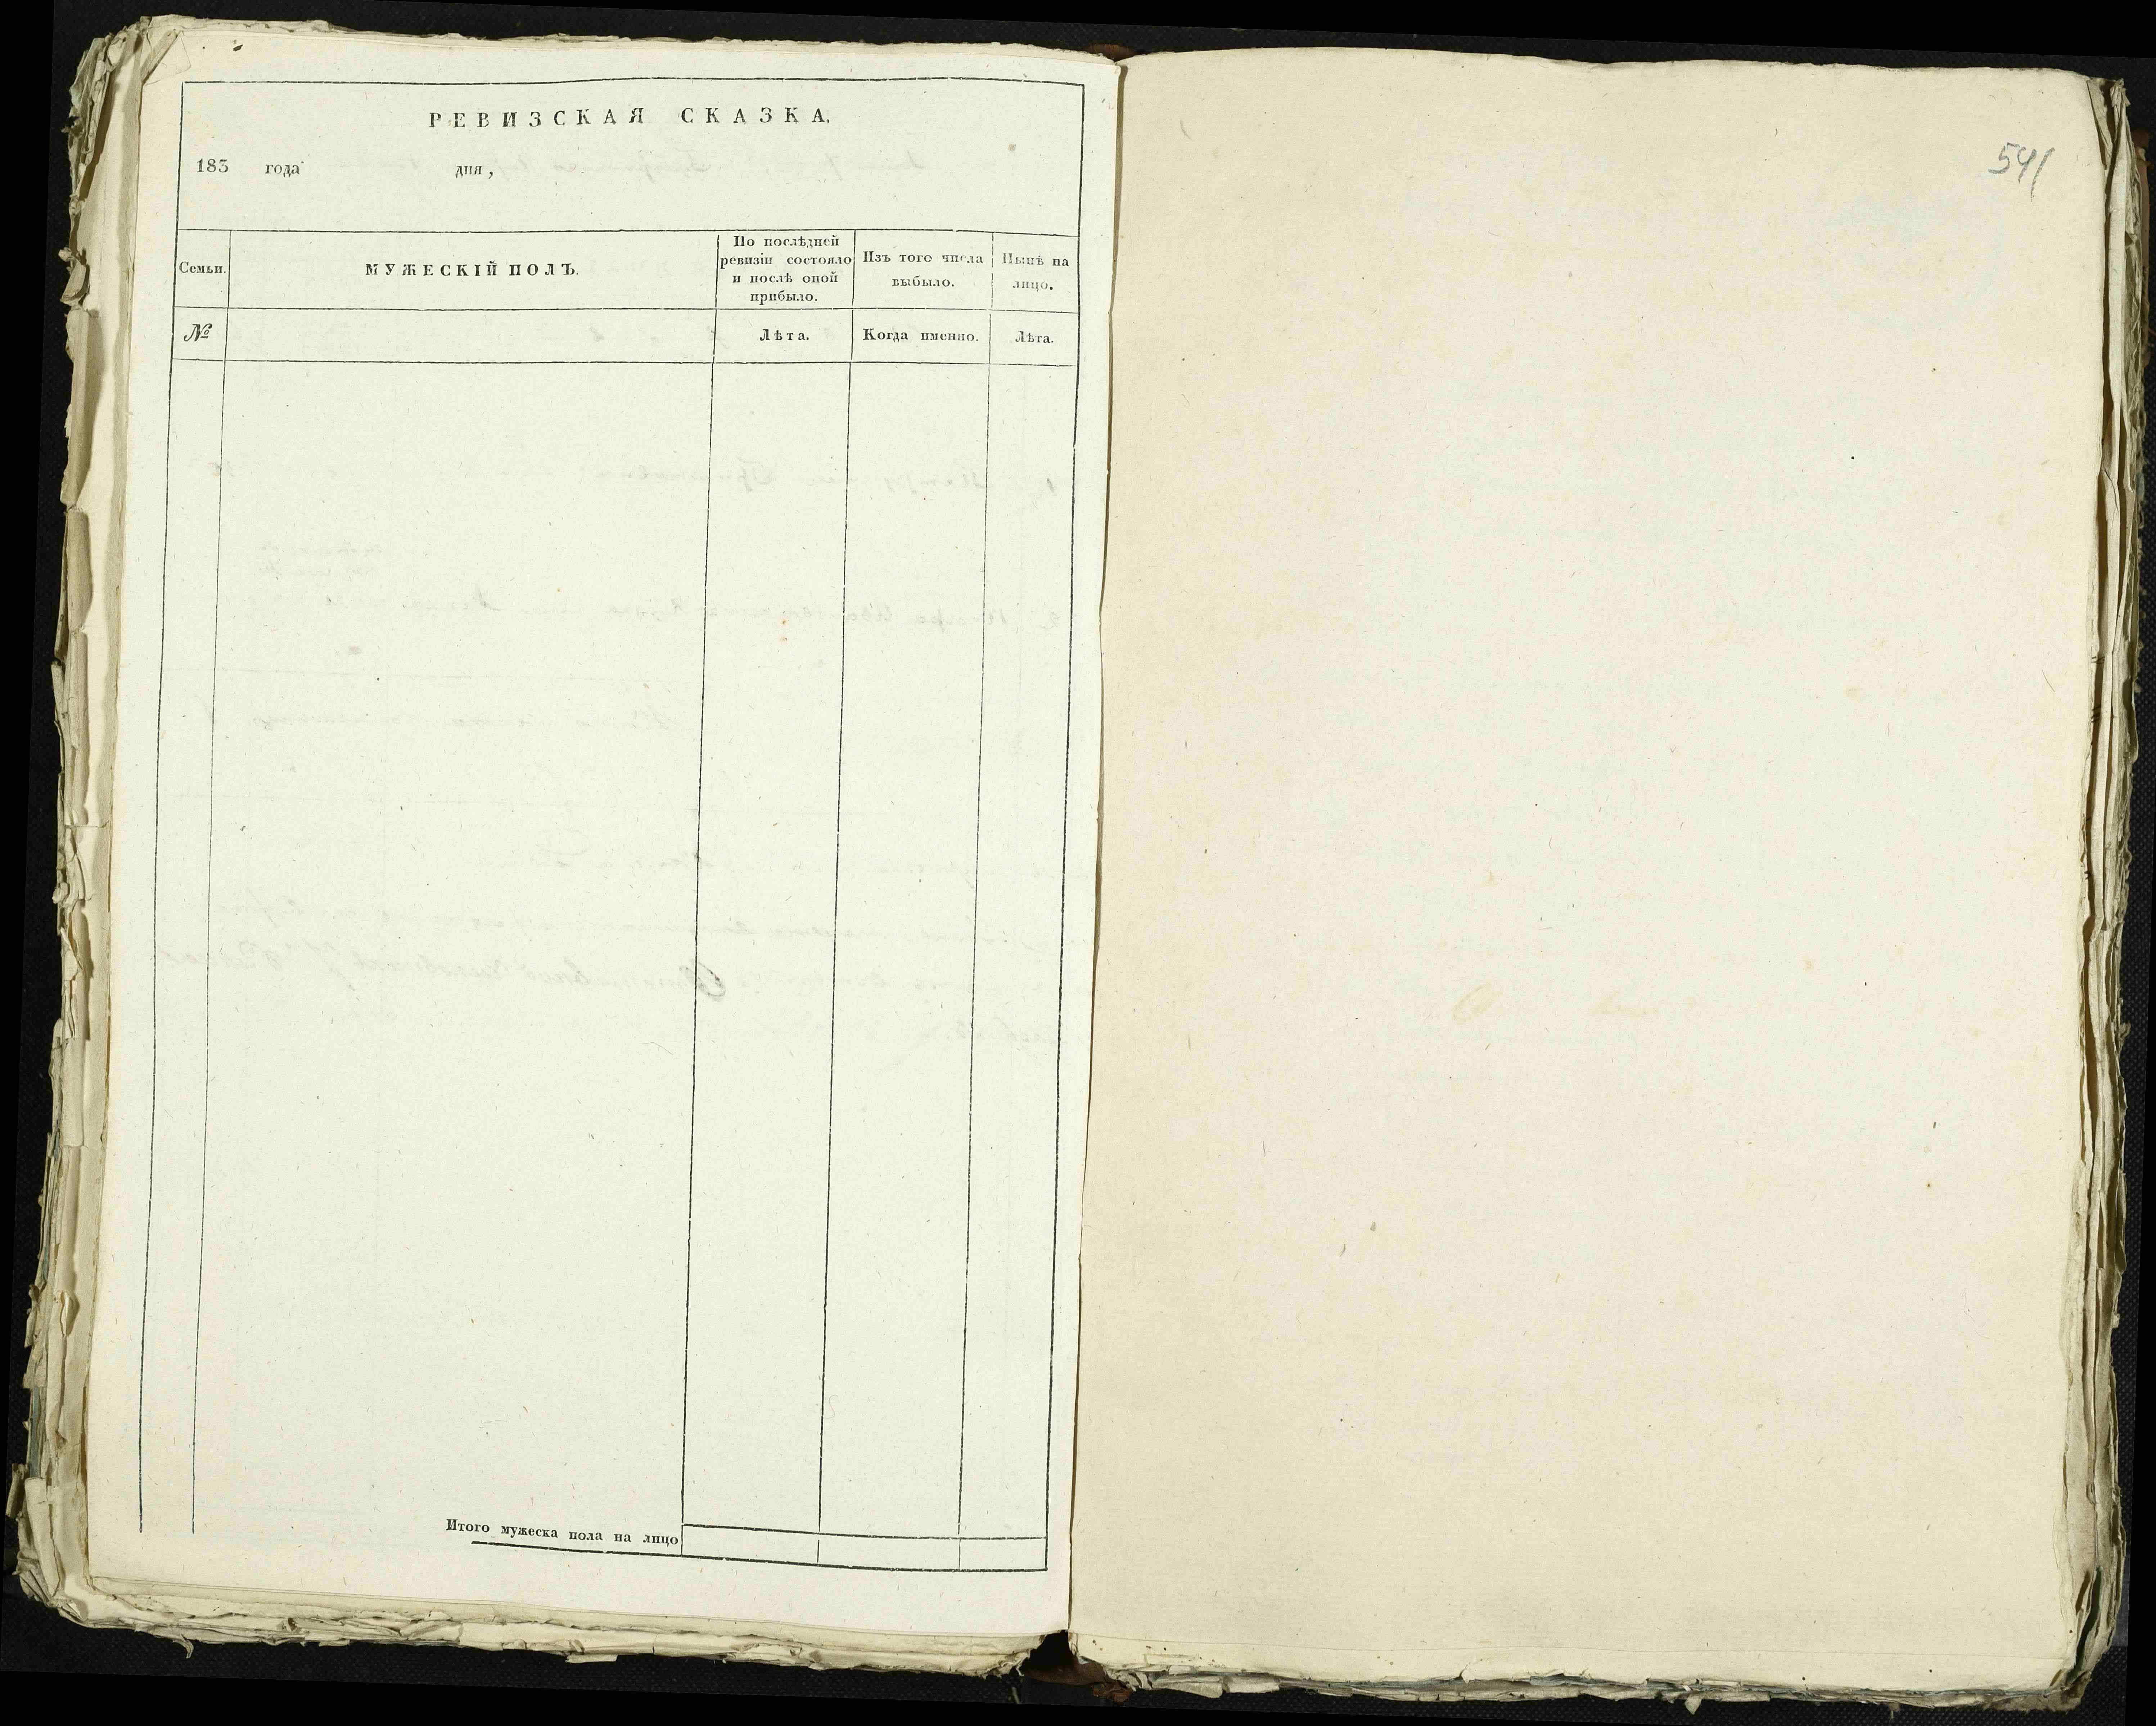 РЕВИЗСКАЯ СКАЗКА.
183 года дня,
Семьи.
МУЖЕСКІЙ ПОЛЪ.
По послѣдней
ревизіи состояло
и послѣ оной
прибыло.
Изъ того числа
выбыло.
Нынѣ на
лицо.
№
Лѣта.
Когда именно.
Лѣта.
Итого мужеска пола на лицо
541